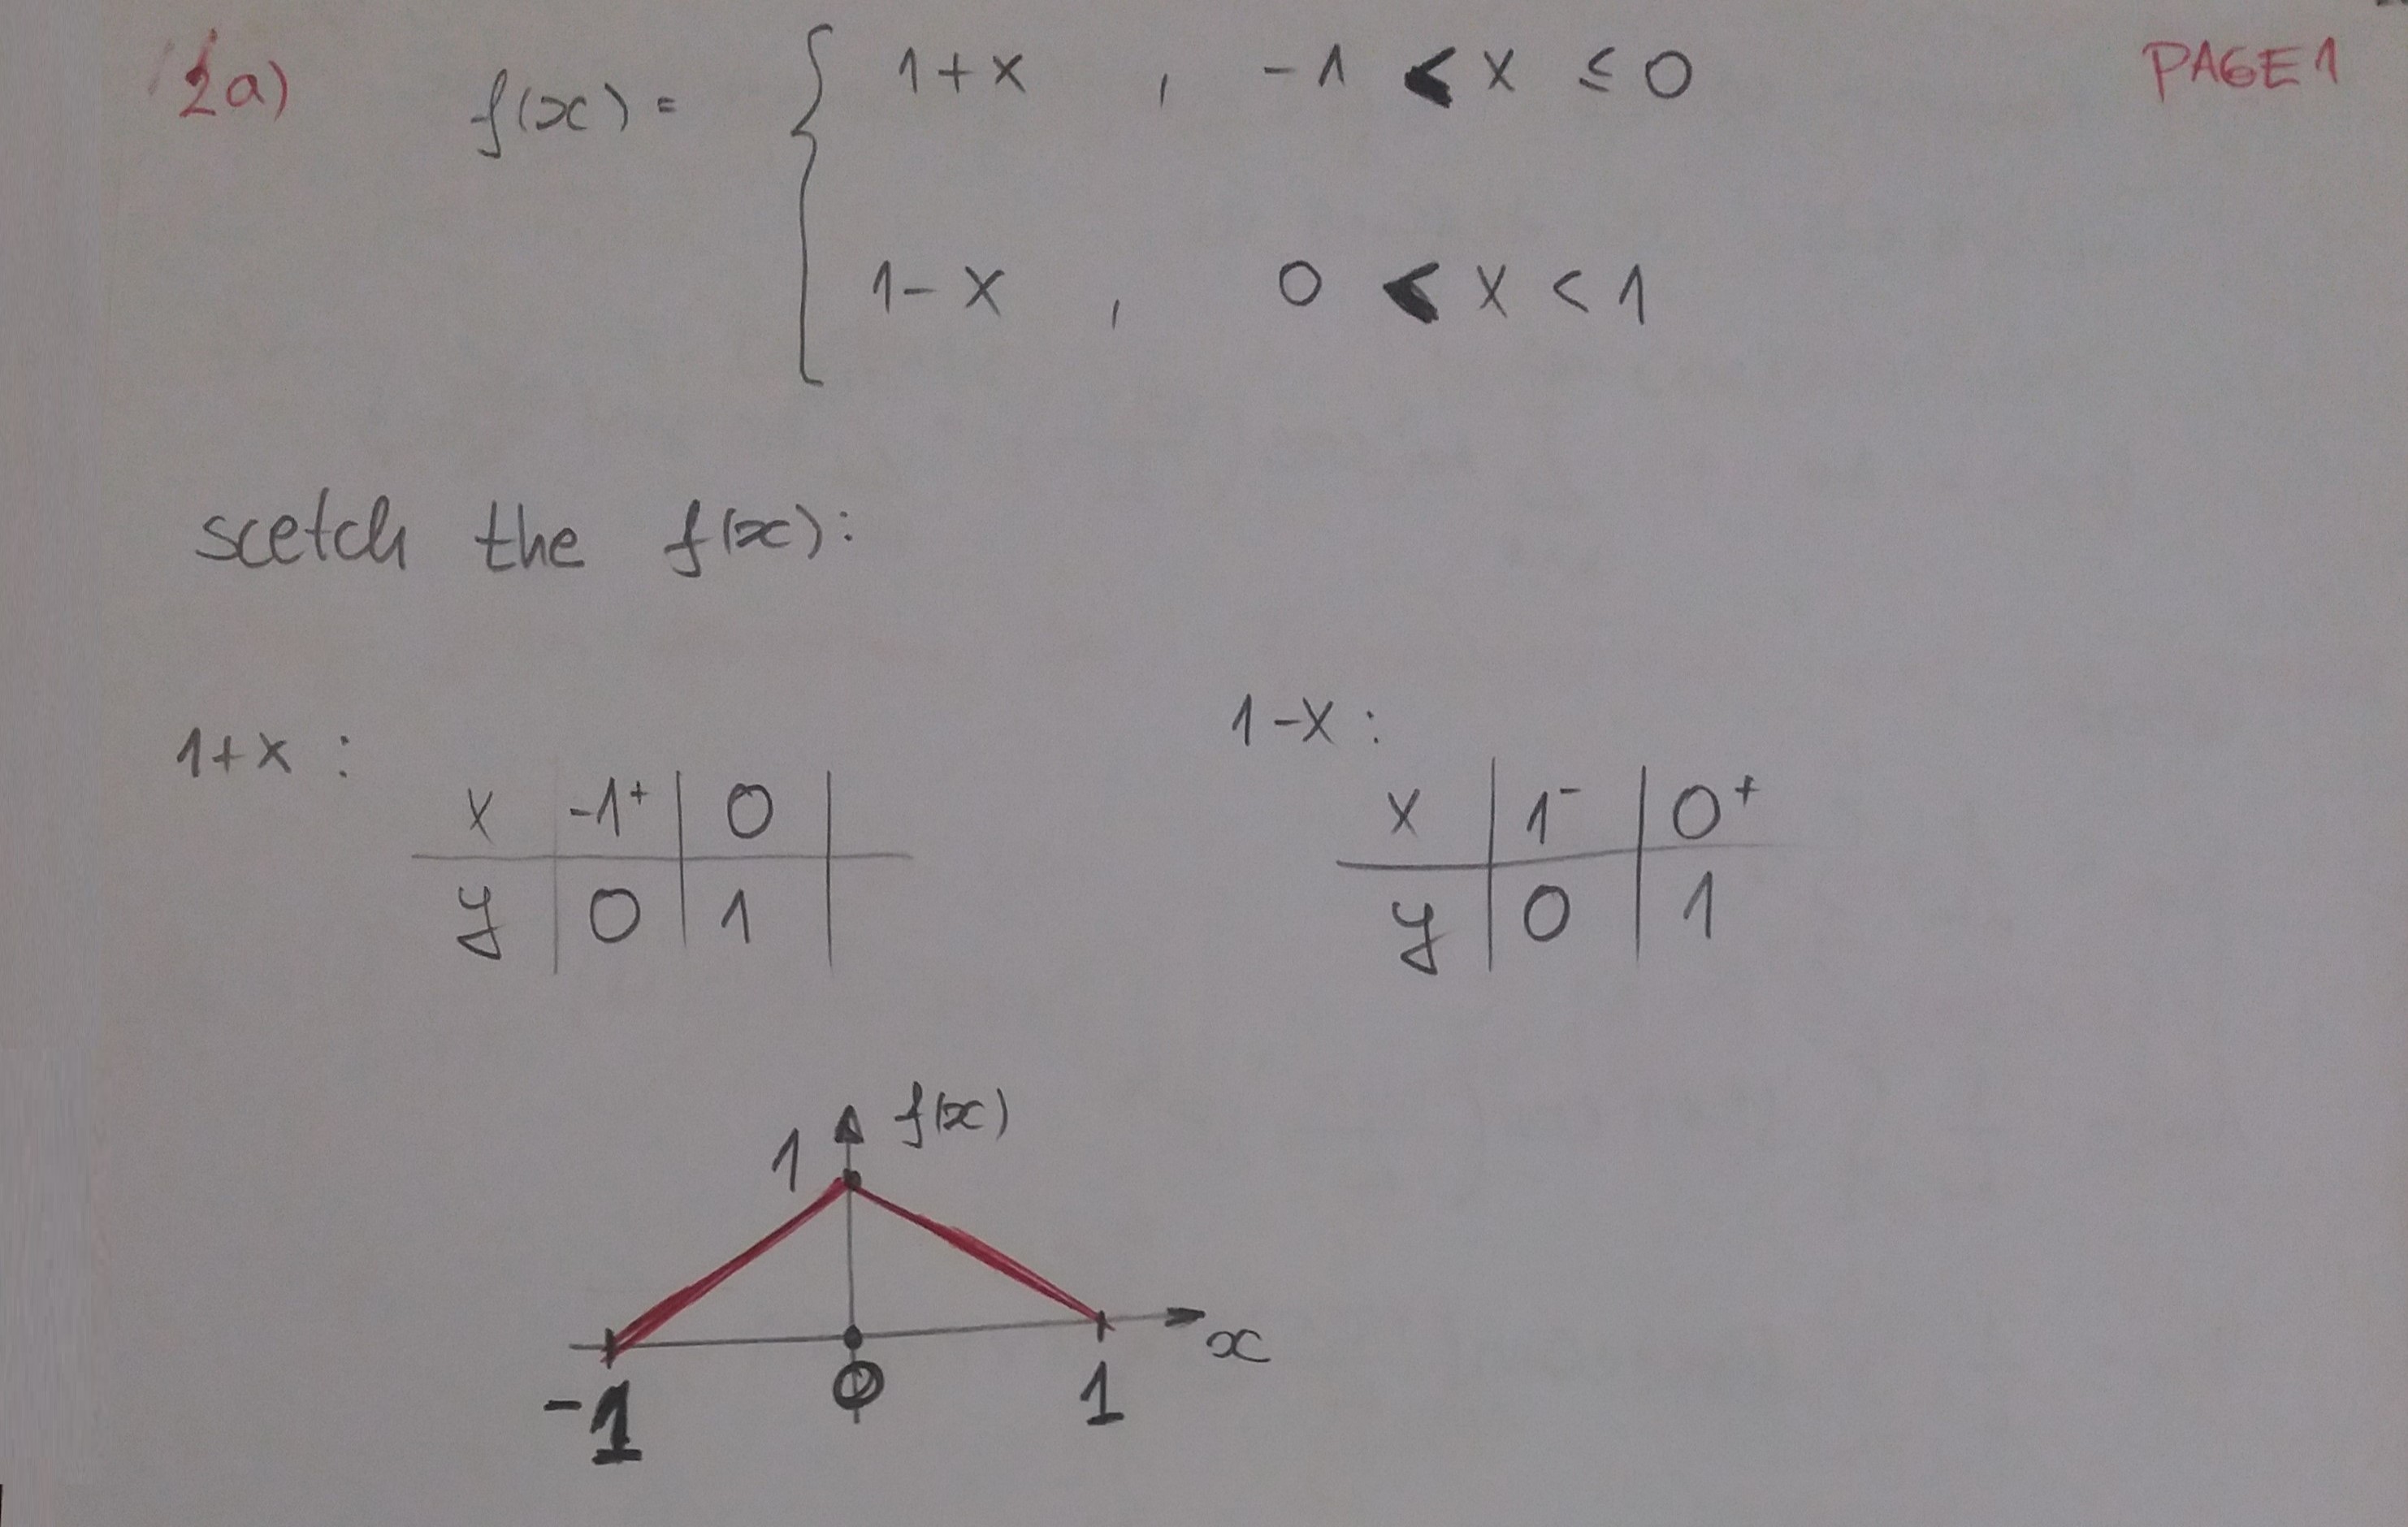 2a) f(x) = { 1+x , -1 < x ≤ 0 PAGE 1
1-x , 0 < x < 1
scetch the f(x):
1+x : 1-x :
x | -1⁺ | 0 | x | 1⁻ | 0⁺
y | 0 | 1 | y | 0 | 1
f(x)
1
x
-1 0 1